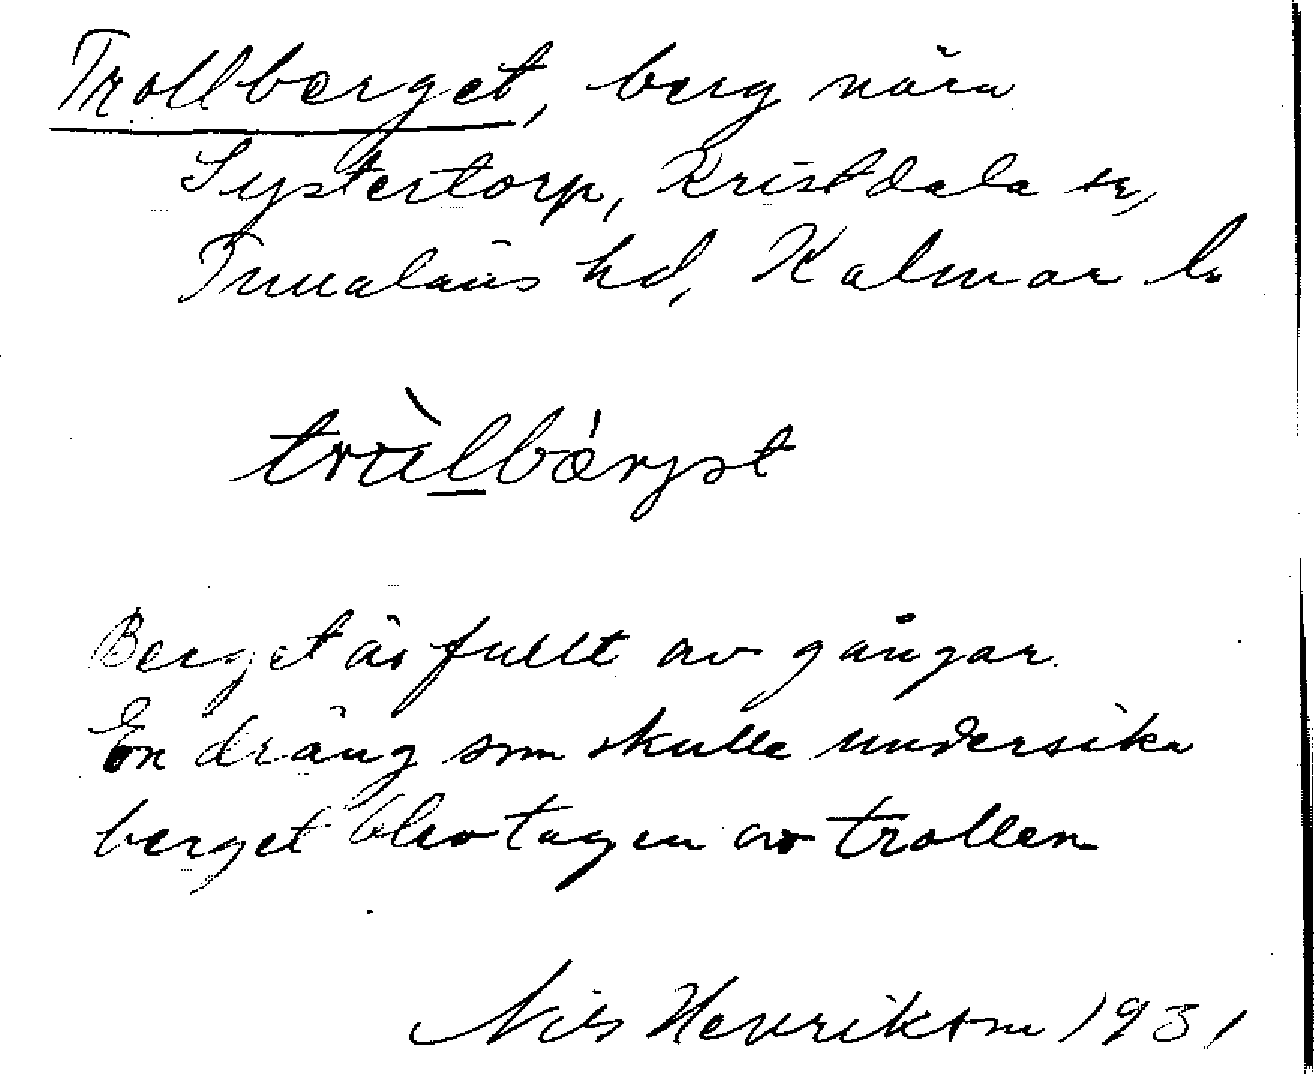 Trollberget, berg nära
Systertorp, Kristdala sn,
Tunaläns hd, Kalmar l.
Berget är fullt av gångar.
En dräng som skulle undersöka
berget blev tagen av trollen
Nils Henrikson 1931